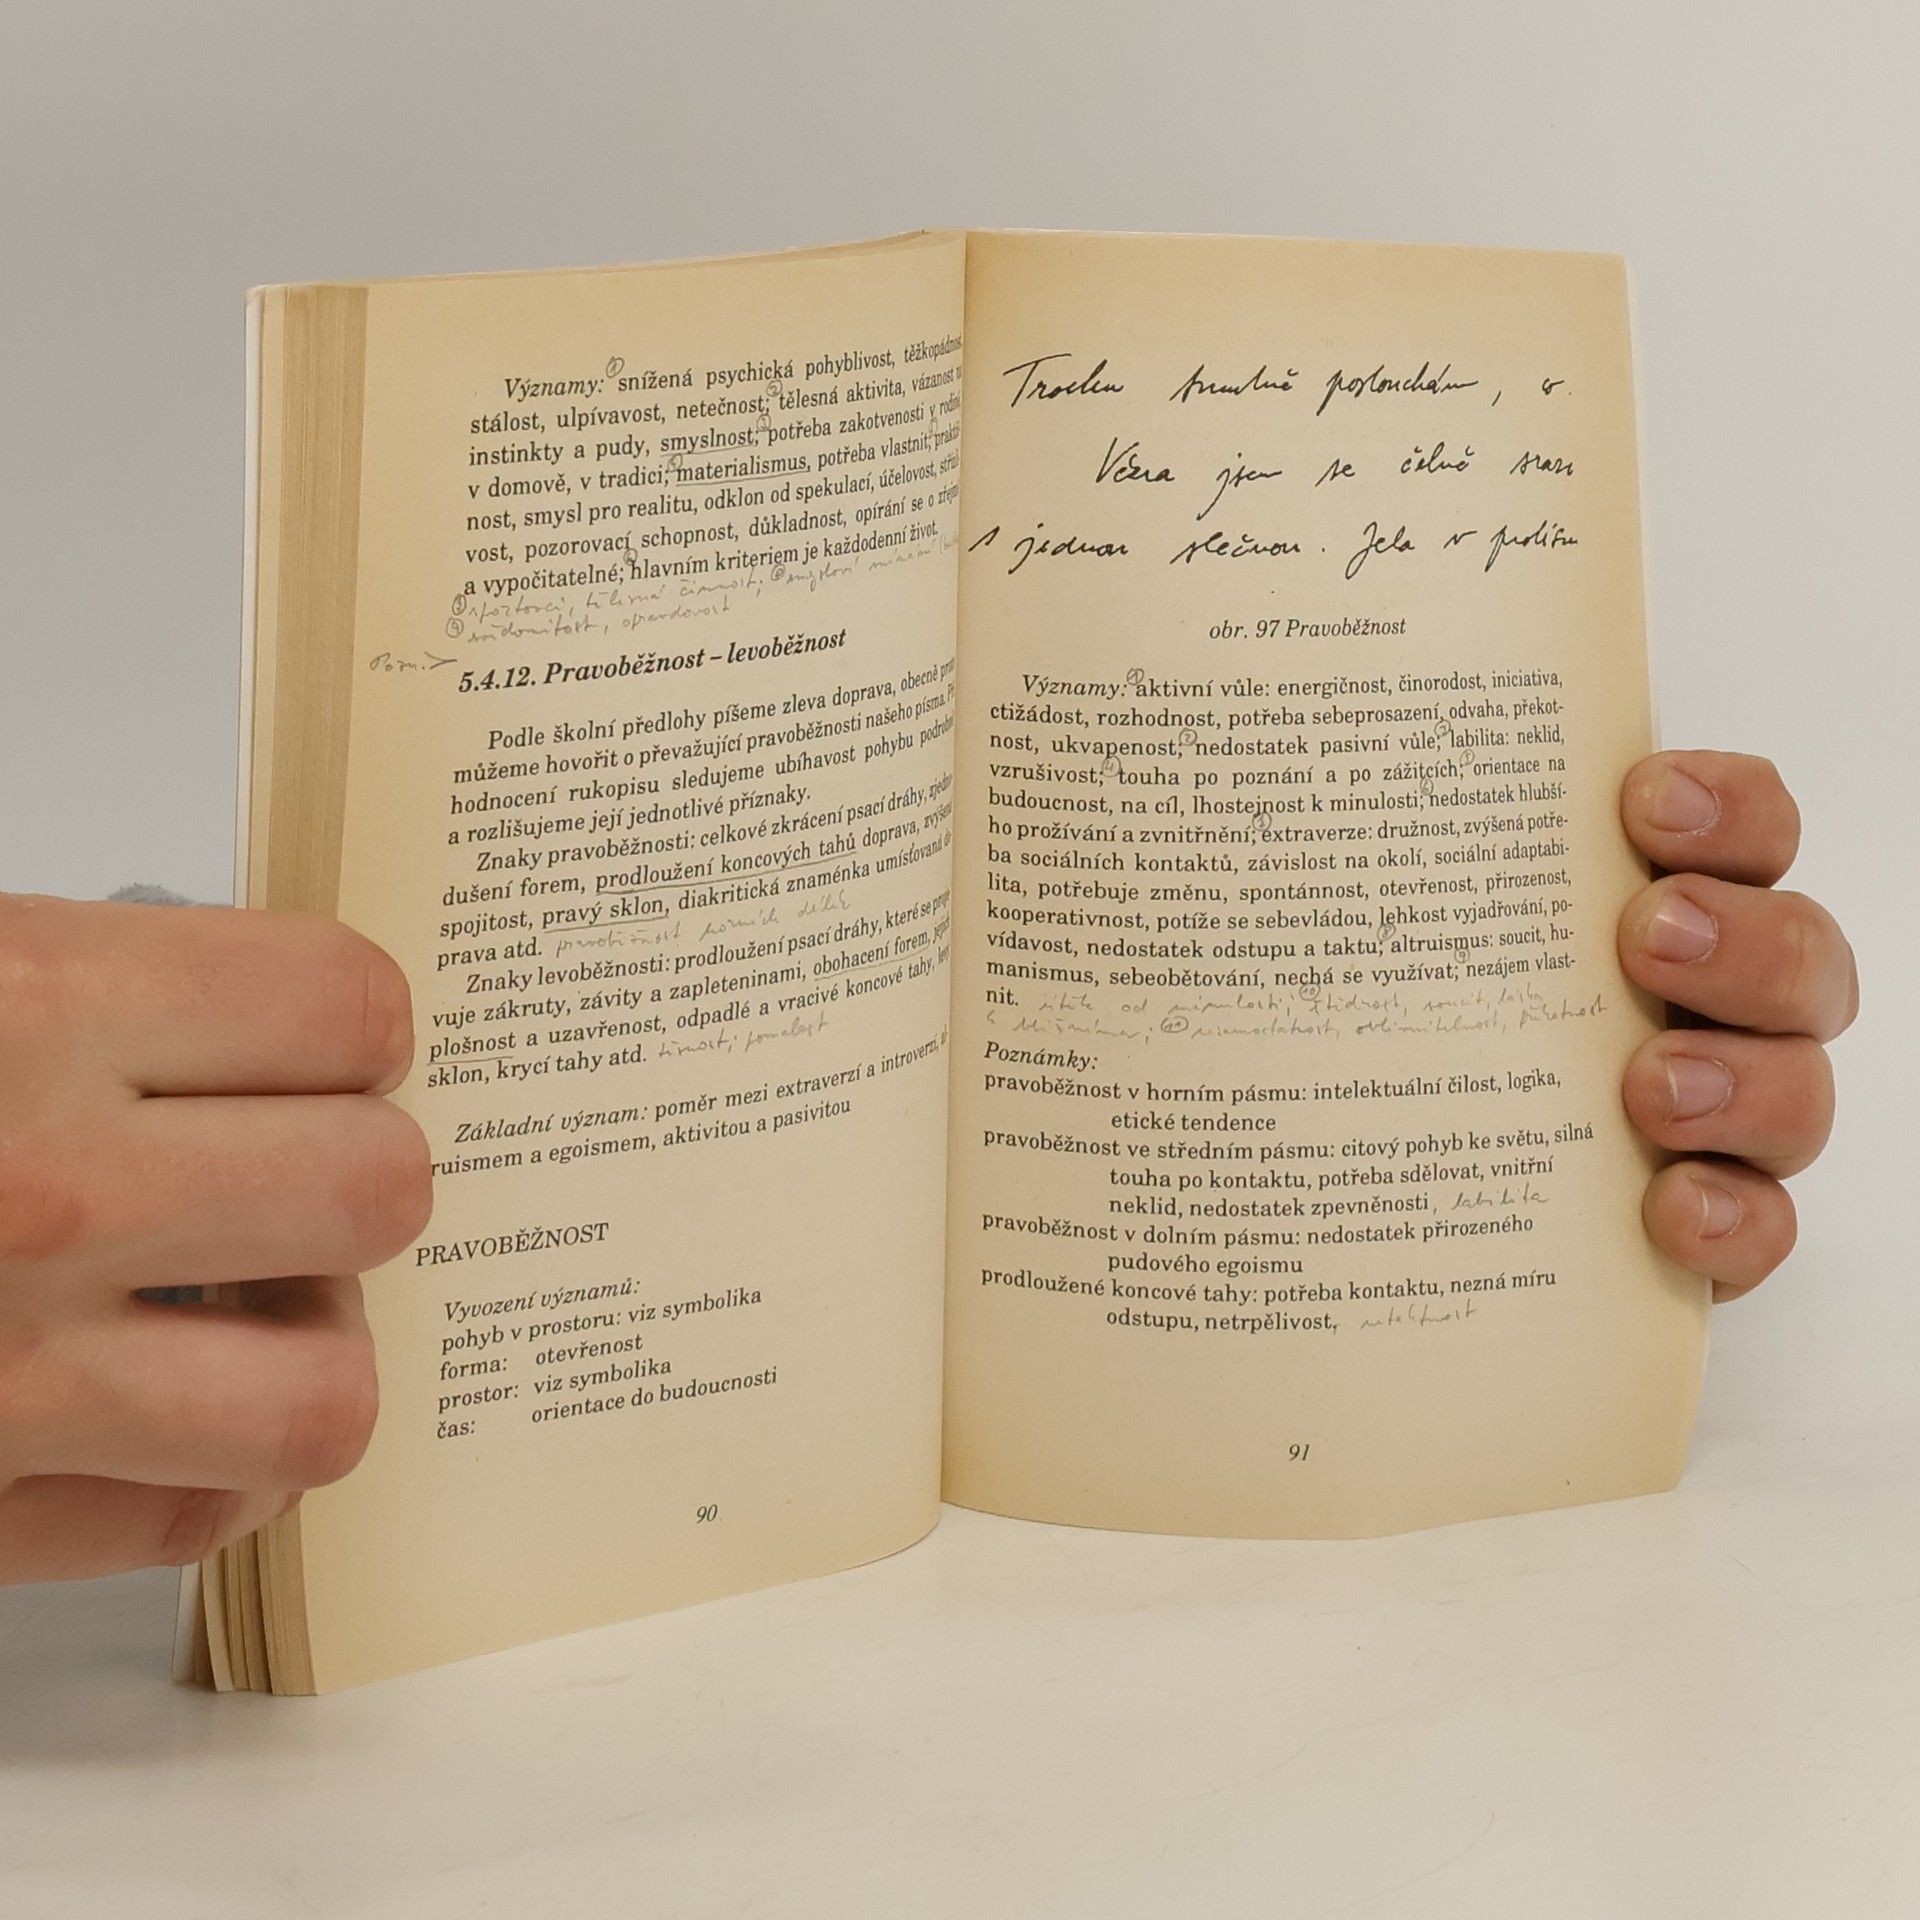 Významy: snížená psychická pohyblivost, těžkopádnost,
stálost, ulpívavost, netečnost; tělesná aktivita, vázanost na
instinkty a pudy, smyslnost; potřeba zakotvenosti v rodině,
v domově, v tradici; materialismus, potřeba vlastnit; prakti-
nost, smysl pro realitu, odklon od spekulací, účelovost, střízli-
vost, pozorovací schopnost, důkladnost, opírání se o zřejmé
a vypočitatelné; hlavním kriteriem je každodenní život.
③ sportovci, tělesná činnost; smyslové vnímání
④ svědomitost, opravdovost
Pozn.
5.4.12. Pravoběžnost – levoběžnost
Podle školní předlohy píšeme zleva doprava, obecně proto
můžeme hovořit o převažující pravoběžnosti našeho písma. Při
hodnocení rukopisu sledujeme ubíhavost pohybu podrobně
a rozlišujeme její jednotlivé příznaky.
Znaky pravoběžnosti: celkové zkrácení psací dráhy, zjedno-
dušení forem, prodloužení koncových tahů doprava, zvýšená
spojitost, pravý sklon, diakritická znaménka umísťovaná do-
prava atd. pravoběžnost horních délek
Znaky levoběžnosti: prodloužení psací dráhy, které se proje-
vuje zákruty, závity a zapleteninami, obohacení forem, jejich
plošnost a uzavřenost, odpadlé a vracivé koncové tahy, levý
sklon, krycí tahy atd. těsnost; pomalost
Základní význam: poměr mezi extraverzí a introverzí, al-
ruismem a egoismem, aktivitou a pasivitou
PRAVOBĚŽNOST
Vyvození významů:
pohyb v prostoru: viz symbolika
forma: otevřenost
prostor: viz symbolika
čas: orientace do budoucnosti
90
Trochu smutně poslouchám,
Včera jsem se čelně srazi
s jednou slečnou. Jela v protism
obr. 97 Pravoběžnost
Významy: ① aktivní vůle: energičnost, činorodost, iniciativa,
ctižádost, rozhodnost, potřeba sebeprosazení, odvaha, překot-
nost, ukvapenost; nedostatek pasivní vůle; labilita: neklid,
vzrušivost; touha po poznání a po zážitcích; orientace na
budoucnost, na cíl, lhostejnost k minulosti; nedostatek hlubší-
ho prožívání a zvnitřnění; extraverze: družnost, zvýšená potře-
ba sociálních kontaktů, závislost na okolí, sociální adaptabi-
lita, potřebuje změnu, spontánnost, otevřenost, přirozenost,
kooperativnost, potíže se sebevládou, lehkost vyjadřování, po-
vídavost, nedostatek odstupu a taktu; altruismus: soucit, hu-
manismus, sebeobětování, nechá se využívat; nezájem vlast-
nit. útěk od minulosti; ⑩ štědrost, soucit, láska
k bližnímu; ⑪ nesamostatnost, ovlivnitelnost,
Poznámky:
pravoběžnost v horním pásmu: intelektuální čilost, logika,
etické tendence
pravoběžnost ve středním pásmu: citový pohyb ke světu, silná
touha po kontaktu, potřeba sdělovat, vnitřní
neklid, nedostatek zpevněnosti, labilita
pravoběžnost v dolním pásmu: nedostatek přirozeného
pudového egoismu
prodloužené koncové tahy: potřeba kontaktu, nezná míru
odstupu, netrpělivost, netaktnost
91